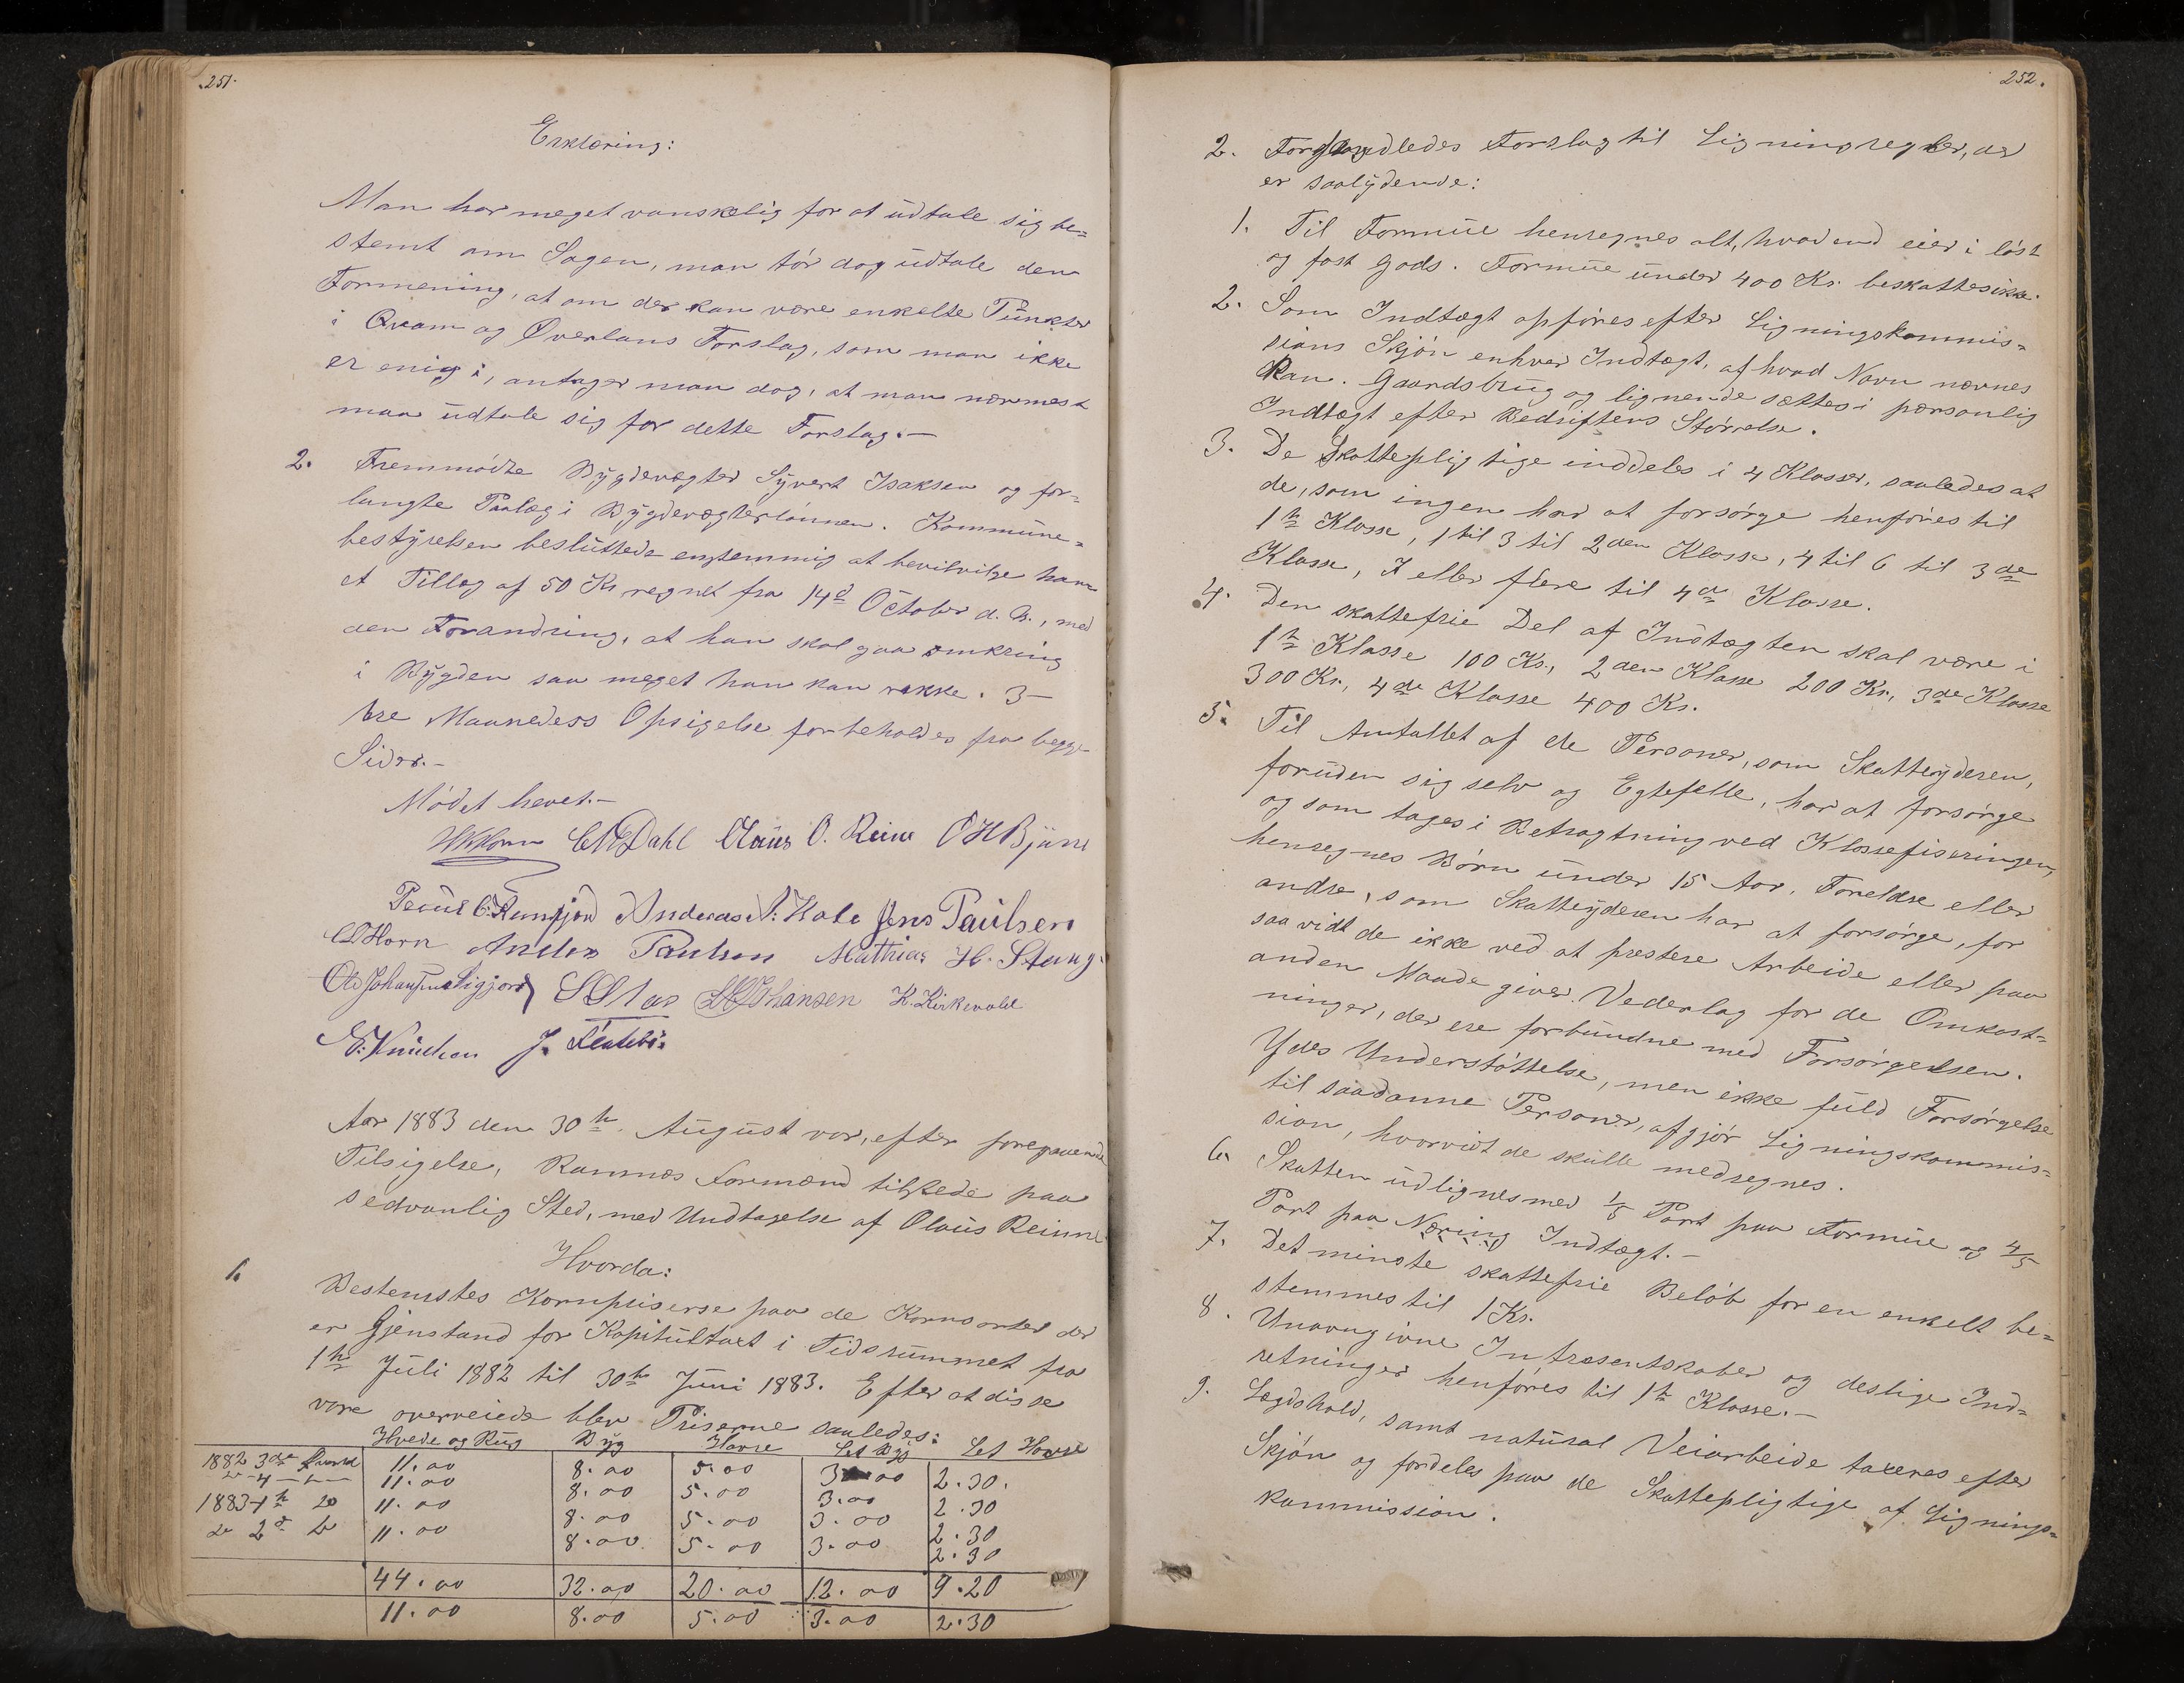 251.
Erklæring:
Man har meget vanskelig for at udtale sig be=
stemt om Sagen, man tør dog udtale den
Formening, at om der kan være enkelte Punkter
i Qvam og Øverlans Forslag, som man ikke
er enig i, antager man dog, at man nærmest
maa udtale sig for dette Forslag.—
2. Fremmødte Bygdevægter Syvert Isaksen og for=
langte Paalæg i Bygdevægterlønnen. Kommune=
bestyrelsen besluttede enstemmig at bevilge ham
et Tillæg af 50 Kr regnet fra 14d October d. A., med
den Forandring, at han skal gaa omkring
i Bygden saa meget han kan række. 3—
tre Maanedess Opsigelse forbeholdes fra begge
Sider.—
Mødet hævet.—
HKHorn Dahl Olaus O. Reine OHBjune
Andreas N. Kate Jens Paulsen
Horn Anders Paulsen Mathias H. Stang.
Ole Johansen Johansen K. Kirkevold
E. Knudsen J.
Aar 1883 den 30te August var, efter foregaaende
Tilsigelse, Ramnæs Formænd tilstede paa
sedvanlig Sted, med Undtagelse af Olaus Reinne
Hvorda:
1. Bestemtes Kornpriserse paa de Kornsorter der
er Gjenstand for Kapitultaxt i Tidsrummet fra
1te Juli 1882 til 30te Juni 1883. Efter at disse
vare overveiede blev Priserne saaledes:
Hvede og Rug Byg Havre Let Byg Let Havre
1882 3de Kvartal 11.00 8.00 5.00 3.00 2.30.
" 4 — " — 11.00 8.00 5.00 3.00 2.30
1883 1te do 11.00 8.00 5.00 3.00 2.30
do 2d do 11.00 8.00 5.00 3.00 2.30
44.00 32.00 20.00 12.00 9.20
11.00 8.00 5.00 3.00 2.30
252.
2. Forhandledes Forslag til Ligningsregler, der
er saalydende:
1. Til Formue henregnes alt, hvad end eies i løst
og fast Gods. Formue under 400 Kr. beskattes ikke.
2. Som Indtægt opføres efter Ligningskommis=
sions Skjøn enhver Indtægt, af hvad Navn nævnes
kan. Gaardsbrug og lignende sættes i personlig
Indtægt efter Bedriftens Størrelse.
3. De Skattepligtige inddeles i 4 Klasser, saaledes at
de, som ingen har at forsørge henføres til
1te Klasse, 1 til 3 til 2den Klasse, 4 til 6 til 3de
Klasse, 7 eller flere til 4de Klasse.
4. Den skattefrie Del af Indtægten skal være i
1te Klasse 100 Kr., 2den Klasse 200 Kr., 3de Klasse
300 Kr., 4de Klasse 400 Kr.
5. Til Antallet af de Personer, som Skatteyderen,
foruden sig selv og Egtefelle, har at forsørge
og som tages i Betragtning ved Klassefiseringen,
henregnes Børn under 15 Aar, Foreldre eller
andre, som Skatteyderen har at forsørge, for
saavidt de ikke ved at prestere Arbeide eller paa
anden Maade giver Vederlag for de Omkost=
ninger, der ere forbundne med Forsørgelsen.
Ydes Understøttelse, men ikke fuld Forsørgelse
til saadanne Personer, afgjør Ligningskommis=
sion, hvorvidt de skulle medregnes.
6. Skatten udlignes med 1/5 Part paa Formue og 4/5
Part paa Næring Indtægt.—
7. Det minste skattefrie Beløb for en enkelt be=
stemmes til 1 Kr.
8. Unavngivne Intresentskaber og deslige Ind=
retninger henføres til 1te Klasse.—
9. Lægdshold, samt natural Veiarbeide taxeres efter
Skjøn og fordeles paa de Skattepligtige af Lignings=
kommission.